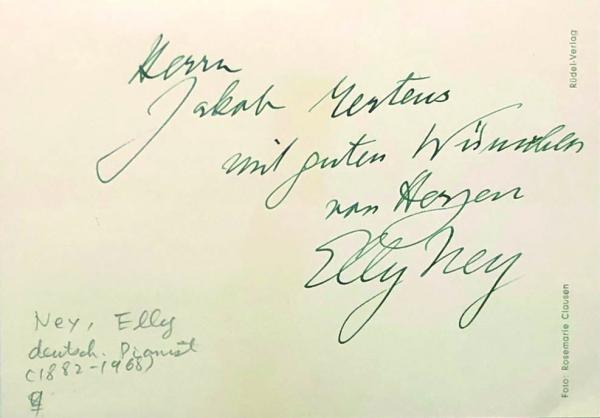 Herrn
Jakob Mertens
mit guten Wünschen
von Herzen
Elly Ney
Ney, Elly
deutsch. Pianist
(1882-1968)
Rüdel-Verlag
Foto: Rosemarie Clausen